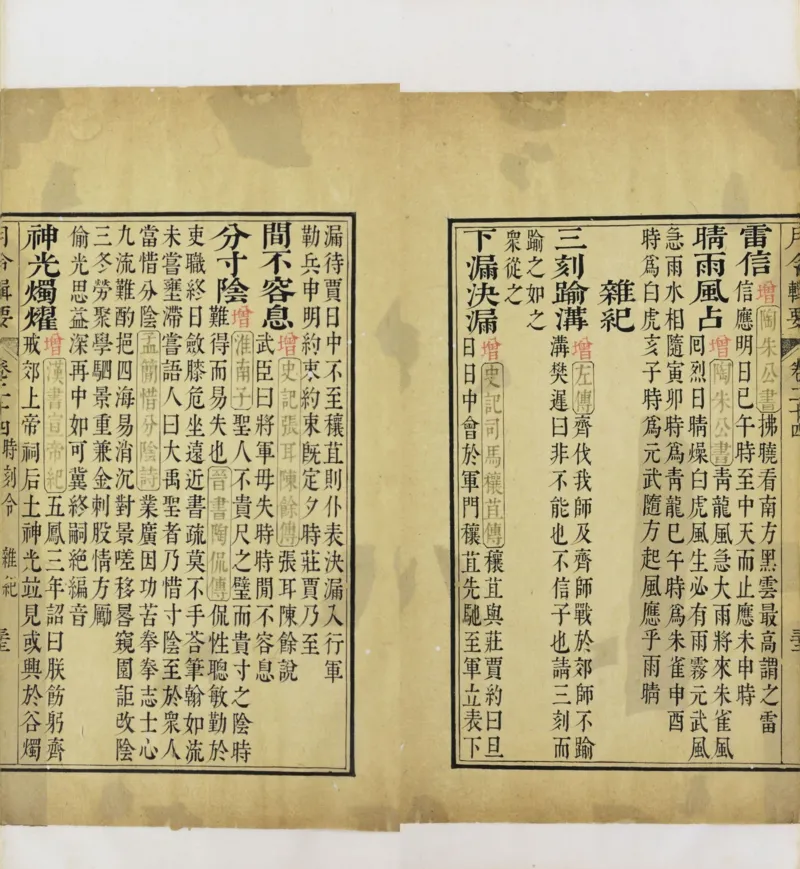 月令輯要 卷二十四
雷信 增陶朱公書拂曉看南方黑雲最高謂之雷
信應明日巳午時至中天而止應未申時
晴雨風占 增陶朱公書青龍風急大雨將來朱雀風
回烈日晴燥白虎風生必有雨霧元武風
急雨水相隨寅卯時爲青龍巳午時爲朱雀申酉
時爲白虎亥子時爲元武隨方起風應乎雨晴
雜紀
三刻踰溝 增左傳齊伐我師及齊師戰於郊師不踰
溝樊遲曰非不能也不信子也請三刻而
踰之如之
衆從之
下漏決漏 增史記司馬穰苴傳穰苴與莊賈約曰旦
日日中會於軍門穰苴先馳至軍立表下
漏待賈日中不至穰苴則仆表決漏入行軍
勒兵申明約束約束旣定夕時莊賈乃至
間不容息 增史記張耳陳餘傳張耳陳餘說
武臣曰將軍毋失時時間不容息
分寸陰 增淮南子聖人不貴尺之璧而貴寸之陰時
難得而易失也晉書陶侃傳侃性聰敏勤於
吏職終日斂膝危坐遠近書疏莫不手荅筆翰如流
未嘗壅滯嘗語人曰大禹聖者乃惜寸陰至於衆人
當惜分陰孟簡惜分陰詩業廣因功苦拳拳志士心
九流難酌挹四海易消沉對景嗟移晷窺園詎改陰
三冬勞聚學駟景重兼金刺股情方勵
偷光思益深再中如可冀終嗣絶編音
神光燭燿 增漢書宣帝紀五鳳三年詔曰朕飭躬齊
戒郊上帝祠后土神光竝見或興於谷燭
月令輯要 卷二十四時刻令 雜紀